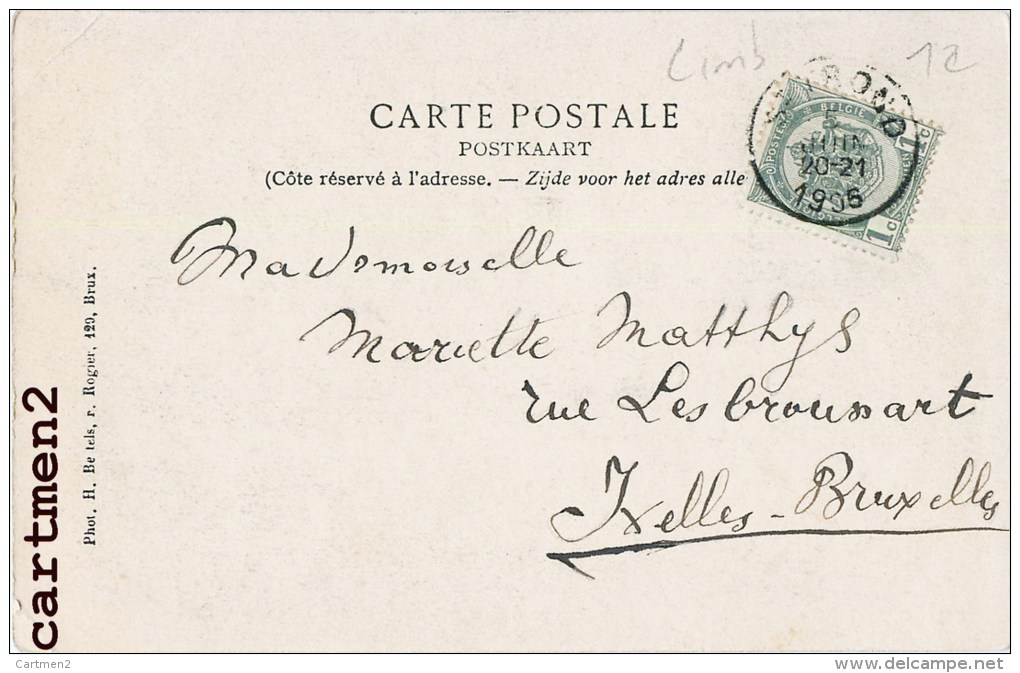 Limb 12
CARTE POSTALE
POSTKAART
(Côte réservé à l'adresse. — Zijde voor het adres alle
POSTES BELGIE
1c
1c
5
JUIN
20-21
Mademoiselle
Mariette Matthys
rue Lesbroussart
Ixelles - Bruxelles
Phot. H. Be tels, r. Rogier, 129, Brux.
cartmen2
Cartmen2
http://www.delcampe.net